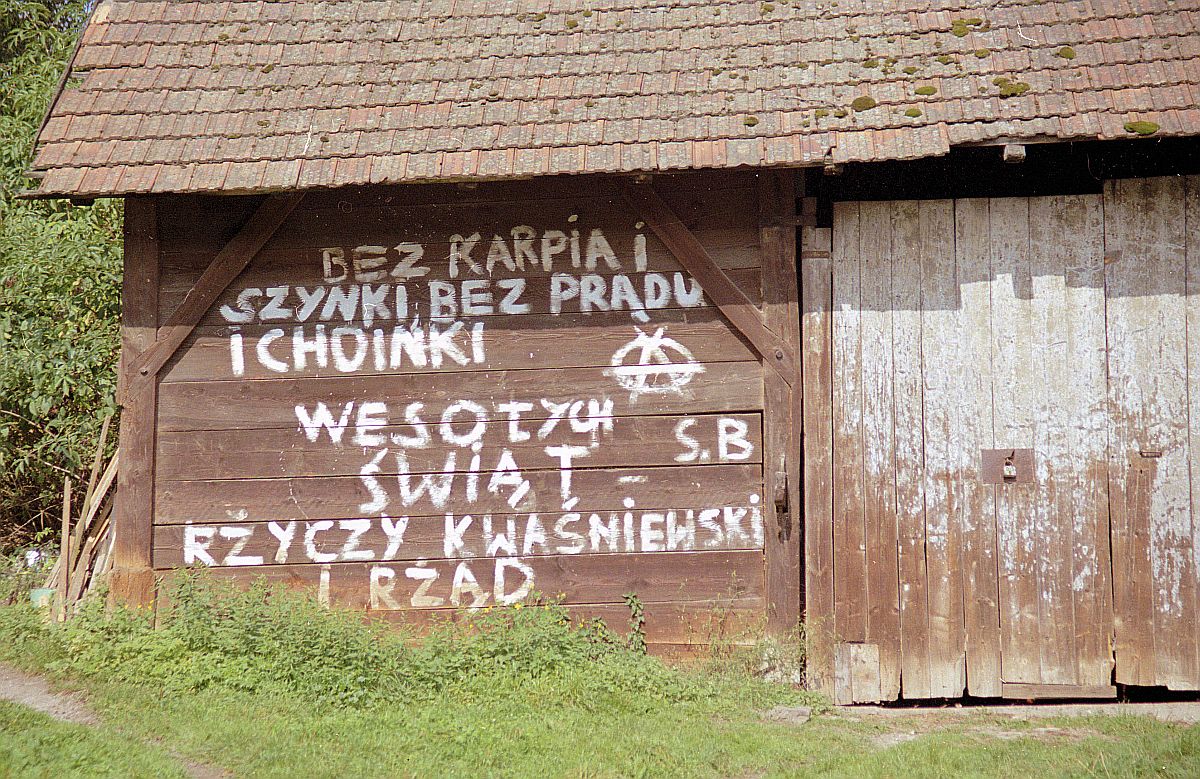 BEZ KARPIA i
SZYNKI BEZ PRĄDU
I CHOIŃKI
WESOTYCH
S.B
ŚWIĄT -
RŻYCZY KWAŚNIEWSKi
I RZĄD